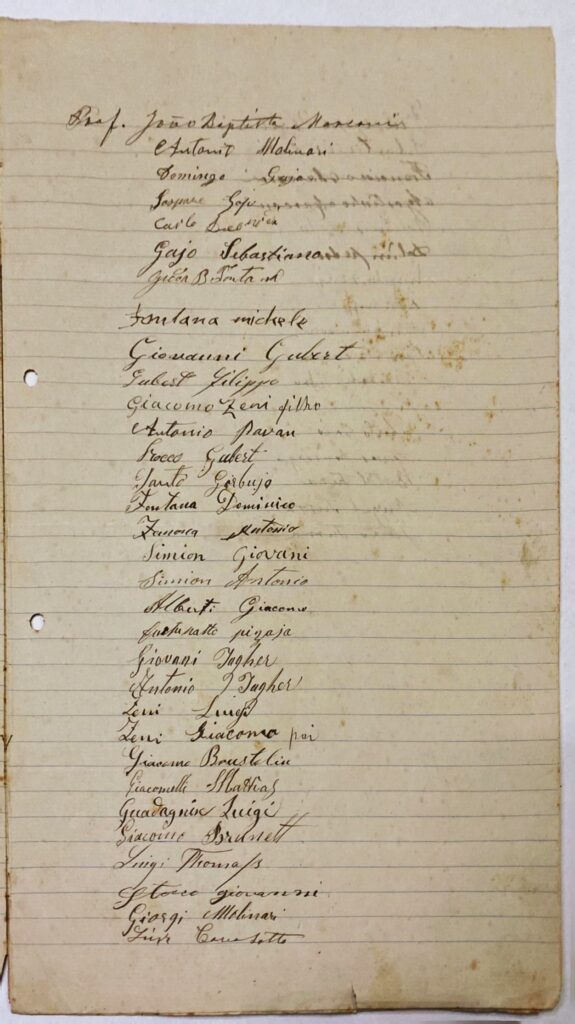 Prof. João Baptista Marconi
Antonio Molinari
Domingo Gajo
Gaspare Gajo
Carlo
Gajo Sebastiano
Fontana
Fontana michele
Giovanni Gubert
Gubert Filippo
Giacomo Zeni filho
Antonio Pavan
Rocco Gubert
Santo Gorbujo
Fontana Dominico
Antonio
Simion Giovani
Simion Antonio
Alberti Giacomo
fortunatto pigaja
Giovani Tagher
Antonio Tagher
Zeni Luigi
Zeni Giacomo pai
Giacomo Brustolin
Giacomelli Mattias
Guadagnin Luigi
Giacomo Brunett
Luigi Thomass
Stoco giovanni
Giorgi Molinari